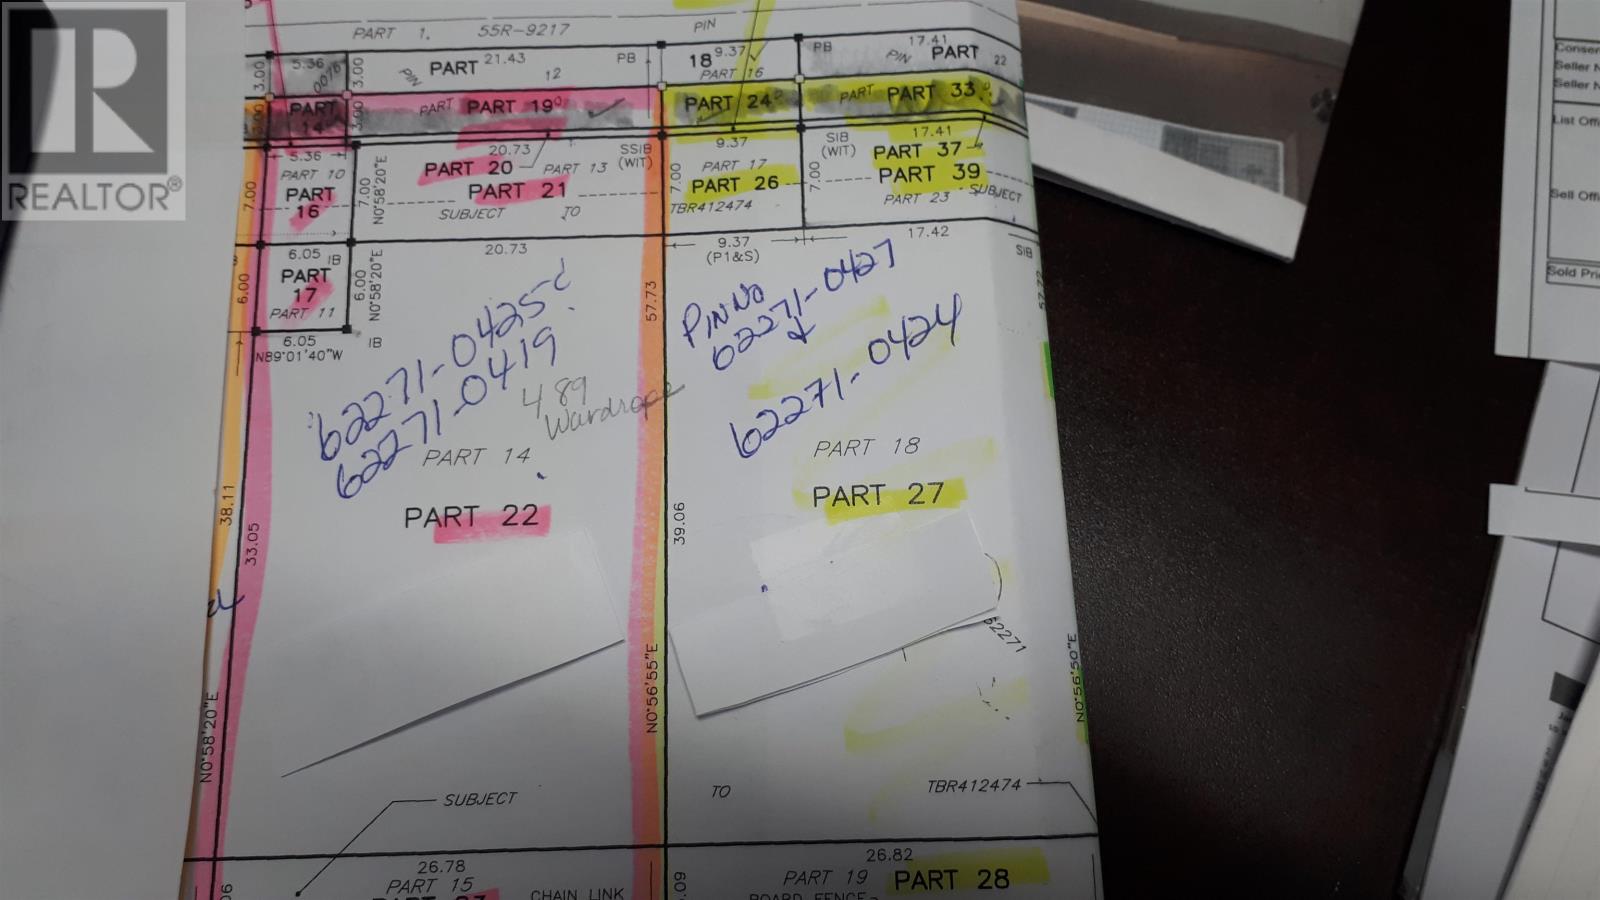 PART 1, 55R-9217
PIN
5.36
3.00
0076
3.00
PIN
PART
21.43
12
PB
18
9.37
PART 16
PB
17.41
PIN PART 22
3.00
PART
14
3.00
PART PART 19
PART 24
PART PART 33
5.36
20.73
SSIB
(WIT)
9.37
SIB
(WIT)
17.41
PART 10
PART
16
7.00
7.00
N0°58'20"E
PART 20
PART 13
PART 21
SUBJECT TO
7.00
PART 17
PART 26
TBR412474
7.00
PART 37
PART 39
PART 23
SUBJECT
6.05
IB
20.73
9.37
(P1&S)
17.42
SIB
PART
17
PART 11
6.00
6.00
N0°58'20"E
6.05
IB
N89°01'40"W
57.73
62271-0425
62271-0419
489
Wardrope
PIN NO
62271-0427
&
62271-0424
PART 14
PART 22
PART 18
PART 27
38.11
33.05
39.06
N0°58'20"E
N0°56'55"E
N0°56'50"E
62271
SUBJECT
TO
TBR412474
26.78
PART 15
CHAIN LINK
26.82
PART 19 PART 28
BOARD FENCE
.09
REALTOR®
Seller N
Seller N
List Offi
Sell Offi
Sold Pri